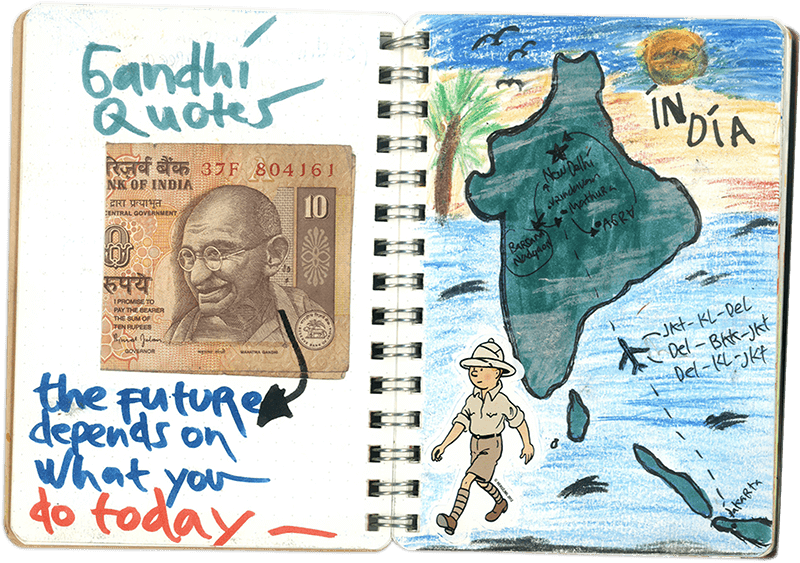 Gandhi
Quotes
रिज़र्व बैंक 37F 804161
NK OF INDIA
द्वारा प्रत्याभूत
CENTRAL GOVERNMENT
10
0
रुपये
I PROMISE TO
PAY THE BEARER
THE SUM OF
TEN RUPEES
GOVERNOR
MAHATMA GANDHI
the FUTURE
depends on
what you
do today
INDIA
New Delhi
Vrindavan
Mathura
AGRA
Barsana
JKT-KL-Del
Del-BKK-JKT
Del-KL-JKT
JAKARTA